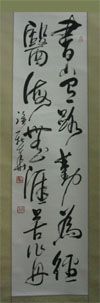 書山有路勤為徑
醫海無涯苦作舟